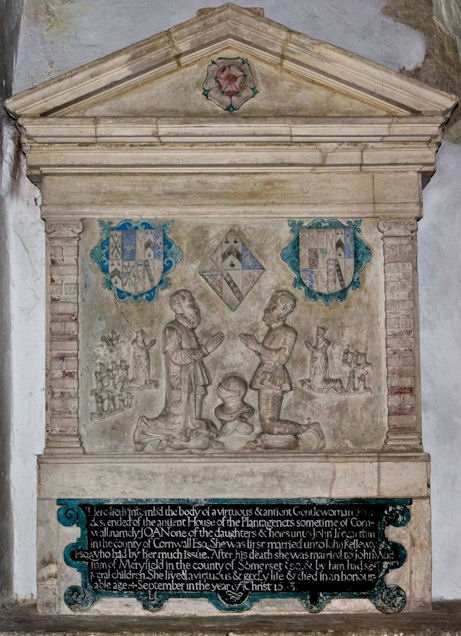 Here lieth intomb'd the body of a virtuous & antient Gentlewoman
descended of the antient House of the Plantagenets sometime of Corn-
wall, namely JOAN one of the daughters & heirs unto John Tregarthin
in the county of Cornwall Esq. She was first married unto John Kellewa
who had by her much Issue. After his death she was married to John
of Meryfield in the county of Somerset Esq. & by him had se-
veral children. She lived a virtuous & godly life & died in an honor-
able age September in the year of Christ